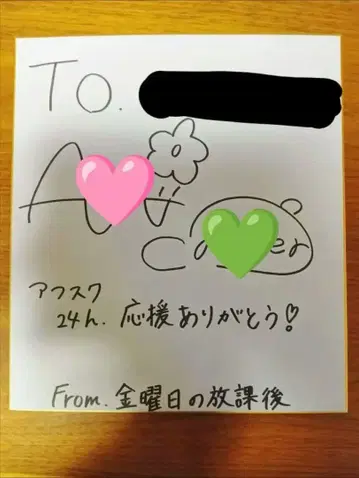 To.
アフスク
24h. 応援ありがとう!
From. 金曜日の放課後